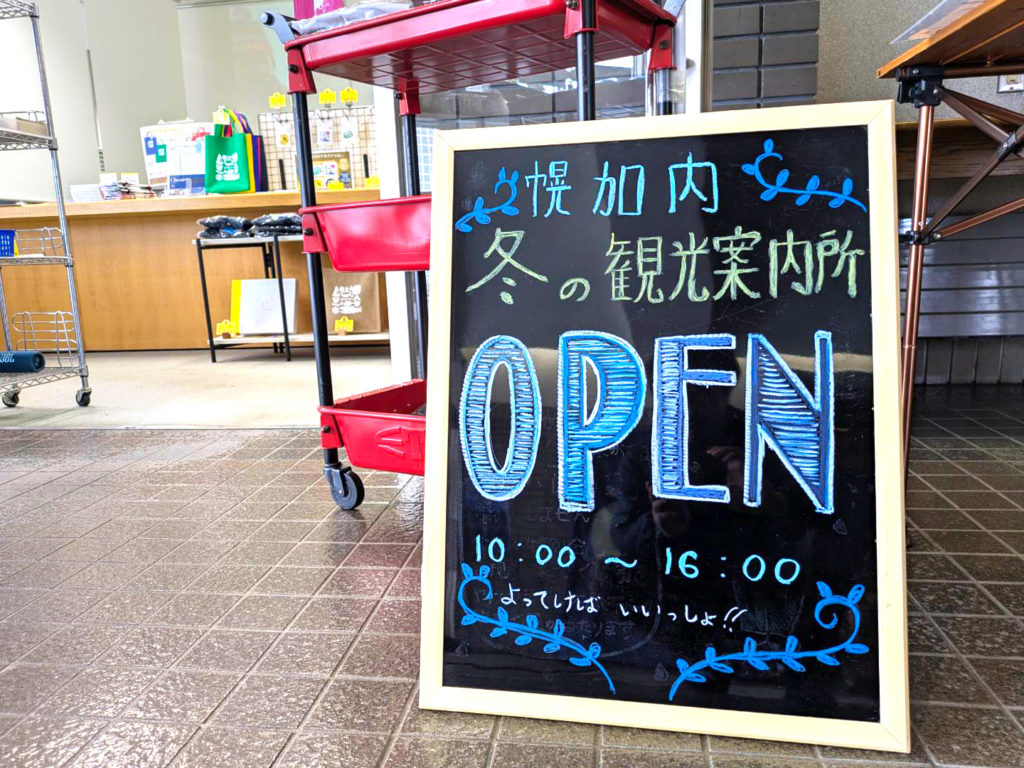 幌加内
冬の観光案内所
OPEN
10:00 ~ 16:00
よってければ いいっしょ!!
JBL